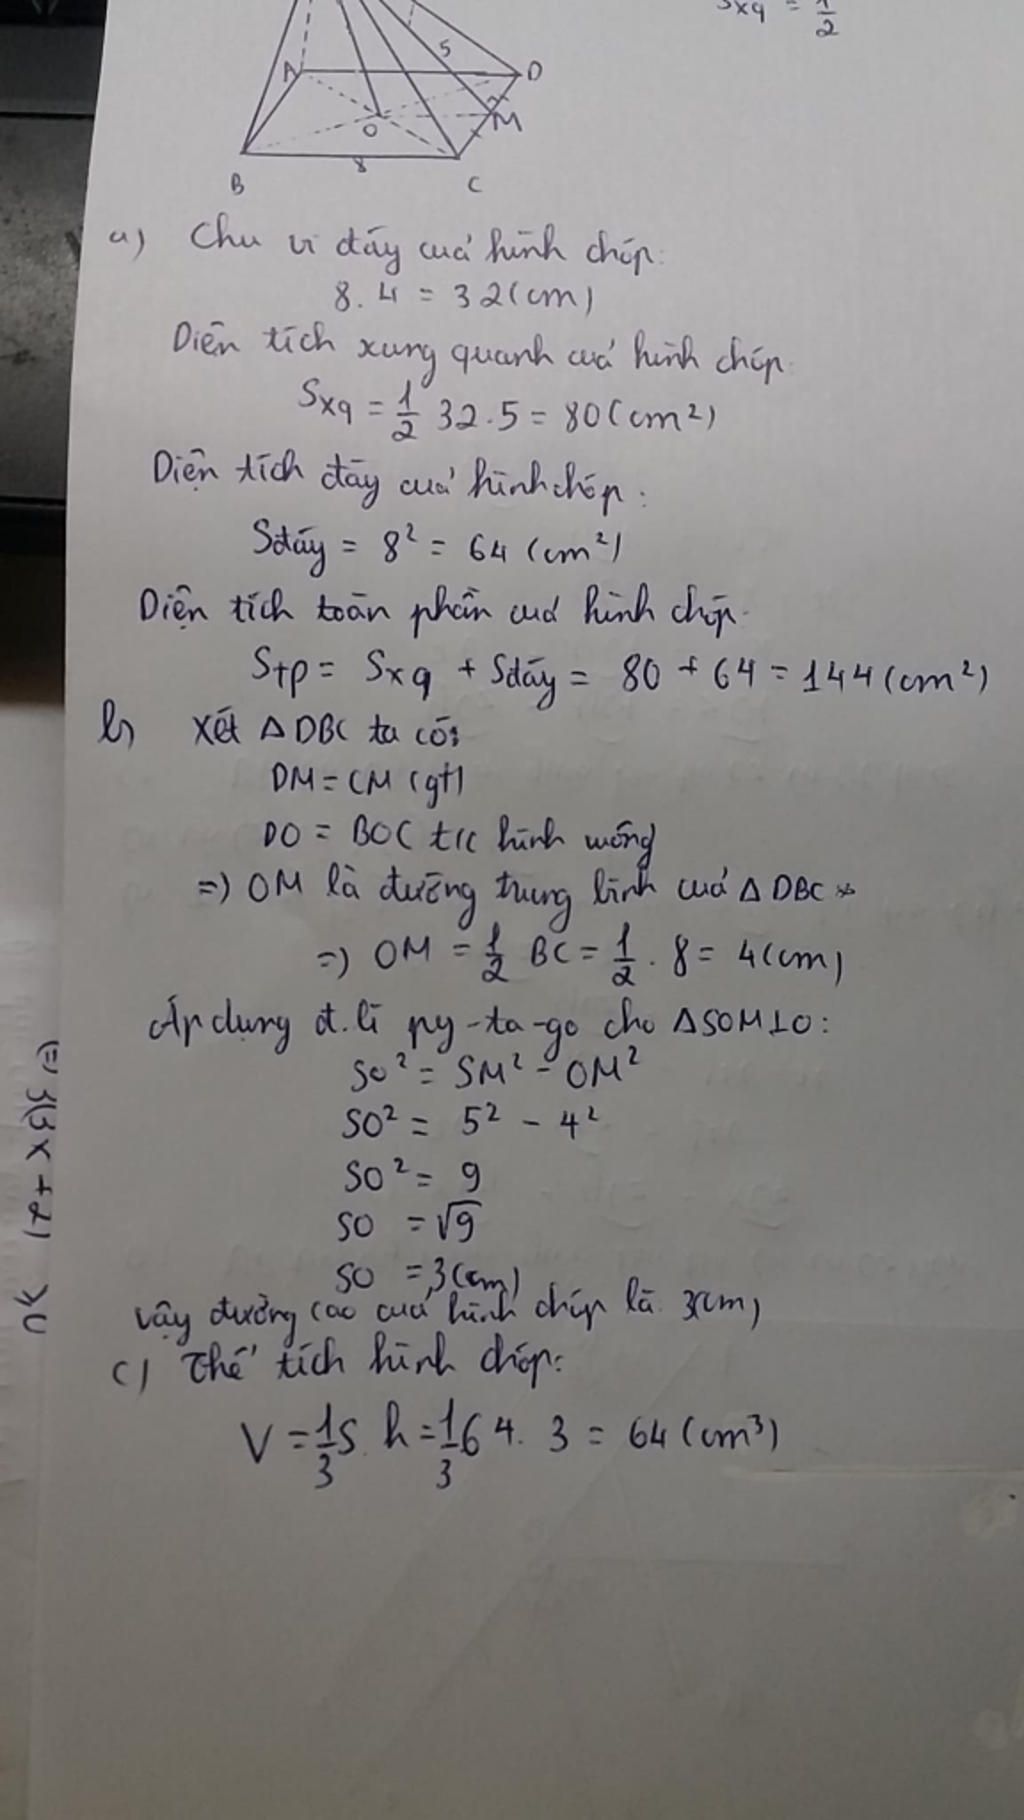 Sxq = 1/2
5
A
D
O
M
B
8
C
a) Chu vi đáy cuả hình chóp:
8.4 = 32(cm)
Diện tích xung quanh cuả hình chóp:
Sxq = 1/2 32.5 = 80(cm²)
Diện tích đáy cuả hình chóp:
Sđáy = 8² = 64 (cm²)
Diện tích toàn phần cuả hình chóp:
Stp = Sxq + Sđáy = 80 + 64 = 144 (cm²)
b) Xét Δ DBC ta có:
DM = CM (gt)
DO = BO( t/c hình vuông
=) OM là đường trung bình cuả Δ DBC
=) OM = 1/2 BC = 1/2 . 8 = 4(cm)
Áp dụng đ.lí py-ta-go cho ΔSOM⊥O:
SO² = SM² - OM²
SO² = 5² - 4²
SO² = 9
SO = √9
SO = 3(cm)
Vậy đường cao cuả hình chóp là 3(cm)
c) Thể tích hình chóp:
V = 1/3 S. h = 1/3 64. 3 = 64 (cm³)